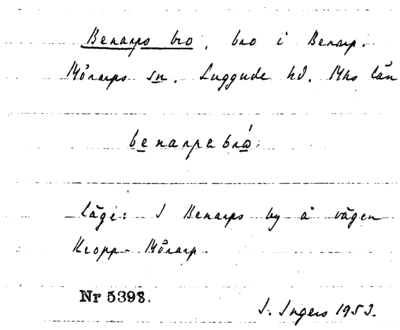 Benarps bro, bro i Benarp.
Mörarps sn. Luggude hd. Mhs län
benarpabrå.
Läge: I Benarps by å vägen
Kropp - Mörarp.
Nr 5393.
I. Ingers 1953.